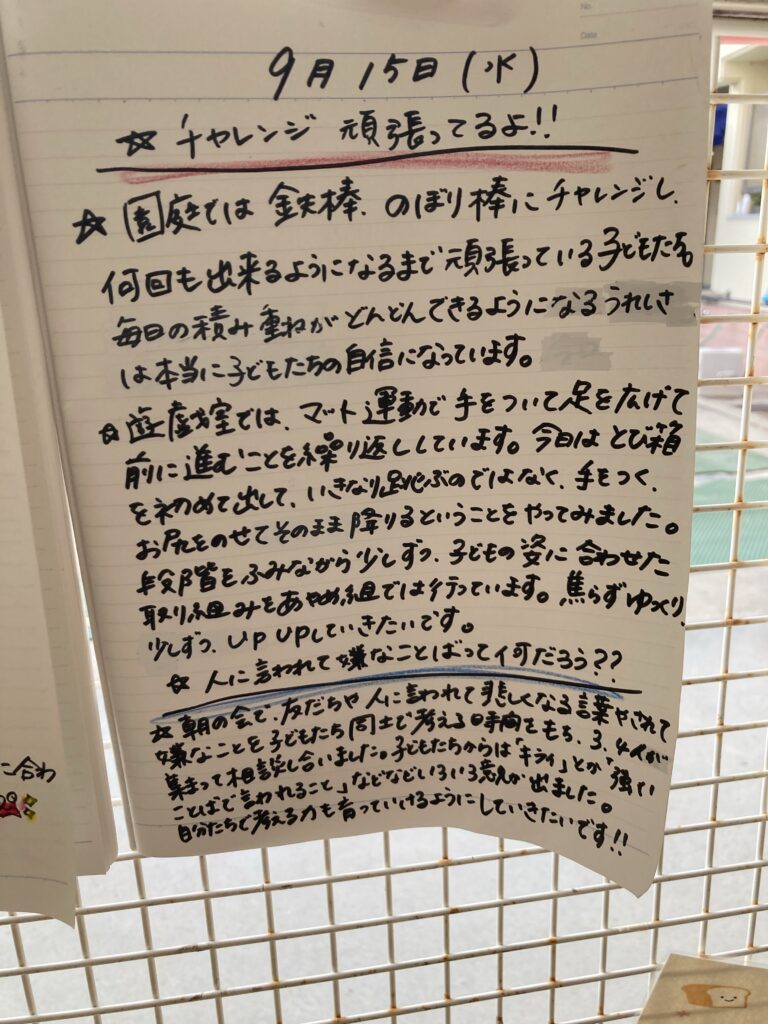 No.
Date
9月15日(水)
☆ チャレンジ 頑張ってるよ!!
☆ 園庭では 鉄棒、のぼり棒にチャレンジし、
何回も出来るようになるまで頑張っている子どもたち。
毎日の積み重ねがどんどんできるようになるうれしさ
は本当に子どもたちの自信になっています。
☆ 遊戯室では、マット運動で手をついて足を広げて
前に進むことを繰り返ししています。今日はとび箱
を初めて出して、いきなり跳ぶのではなく、手をつく、
お尻をのせてそのまま降りるということをやってみました。
段階をふみながら少しずつ、子どもの姿に合わせた
取り組みをあやめ組では行っています。焦らずゆっくり、
少しずつ、UP UPしていきたいです。
☆ 人に言われて嫌なことばって何だろう??
☆ 朝の会で、友だちや人に言われて悲しくなる言葉やされて
嫌なことを子どもたち同士で考える時間をもち、3、4人が
集まって相談し合いました。子どもたちからは「キライ」とか「強い
ことばで言われること」などなどいろいろ意見が出ました。
自分たちで考える力も育っていけるようにしていきたいです!!
に合わ